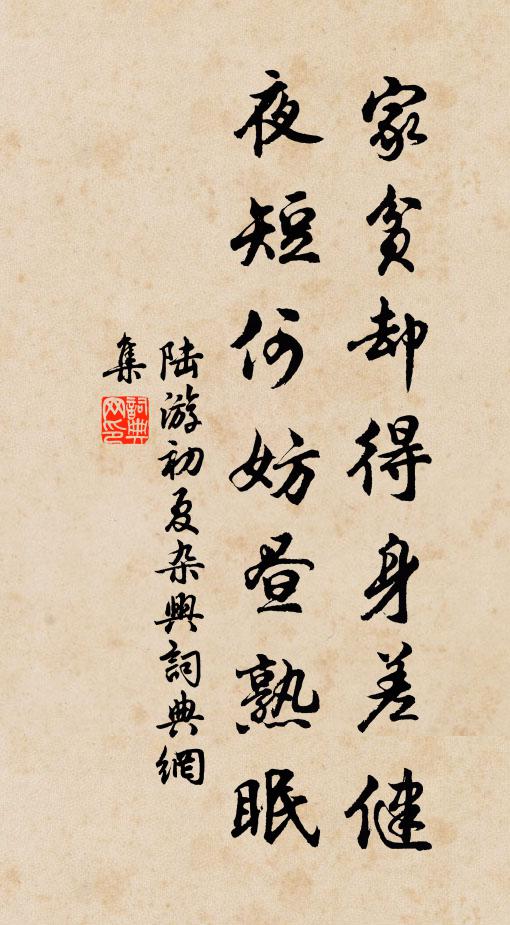 家貧却得身差健
夜短何妨昼熟眠
陆游初夏杂興詞典網
集
詞典网印